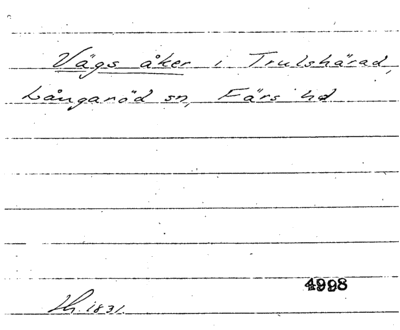 Vägs åker i Trulshärad,
Långaröd sn, Färs hd
4998
1831